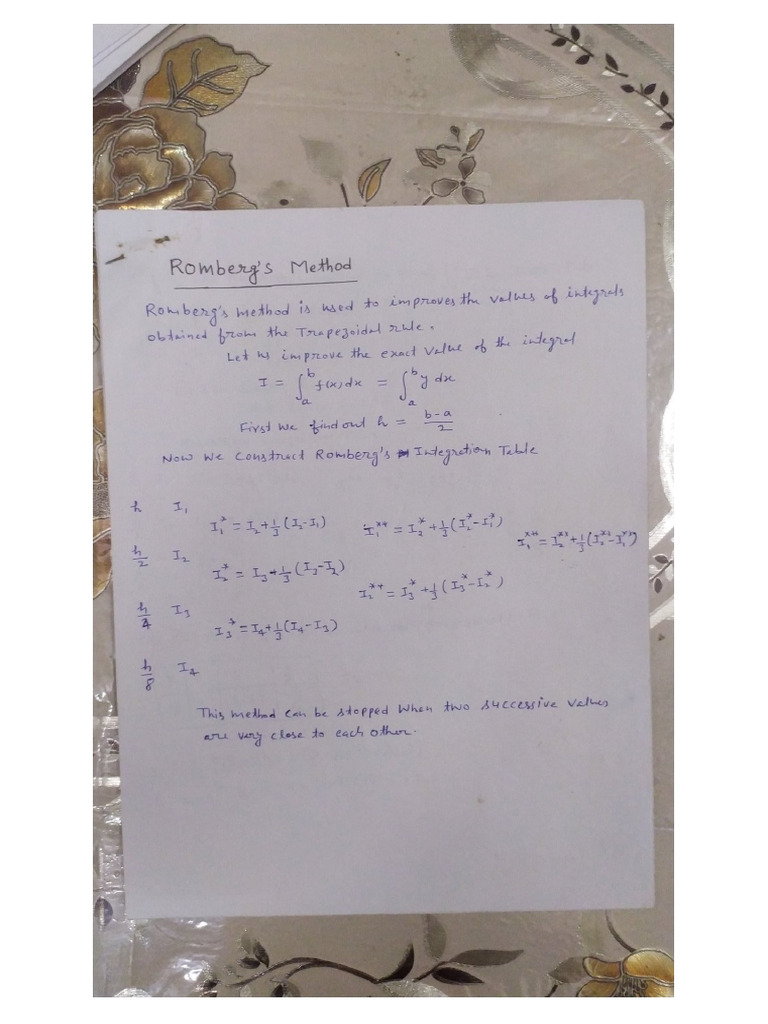 Romberg's Method
Romberg's method is used to improves the values of integrals
obtained from the Trapezoidal rule.
Let us improve the exact value of the integral
I = ∫_a^b f(x) dx = ∫_a^b y dx
First we find out h = (b-a)/2
Now we construct Romberg's Integration Table
h I₁
I₁* = I₂ + 1/3 (I₂ - I₁) I₁** = I₂* + 1/3 (I₂* - I₁*)
I₁*** = I₂** + 1/3 (I₂** - I₁**)
h/2 I₂
I₂* = I₃ + 1/3 (I₃ - I₂)
I₂** = I₃* + 1/3 (I₃* - I₂*)
h/4 I₃
I₃* = I₄ + 1/3 (I₄ - I₃)
h/8 I₄
This method can be stopped when two successive values
are very close to each other.